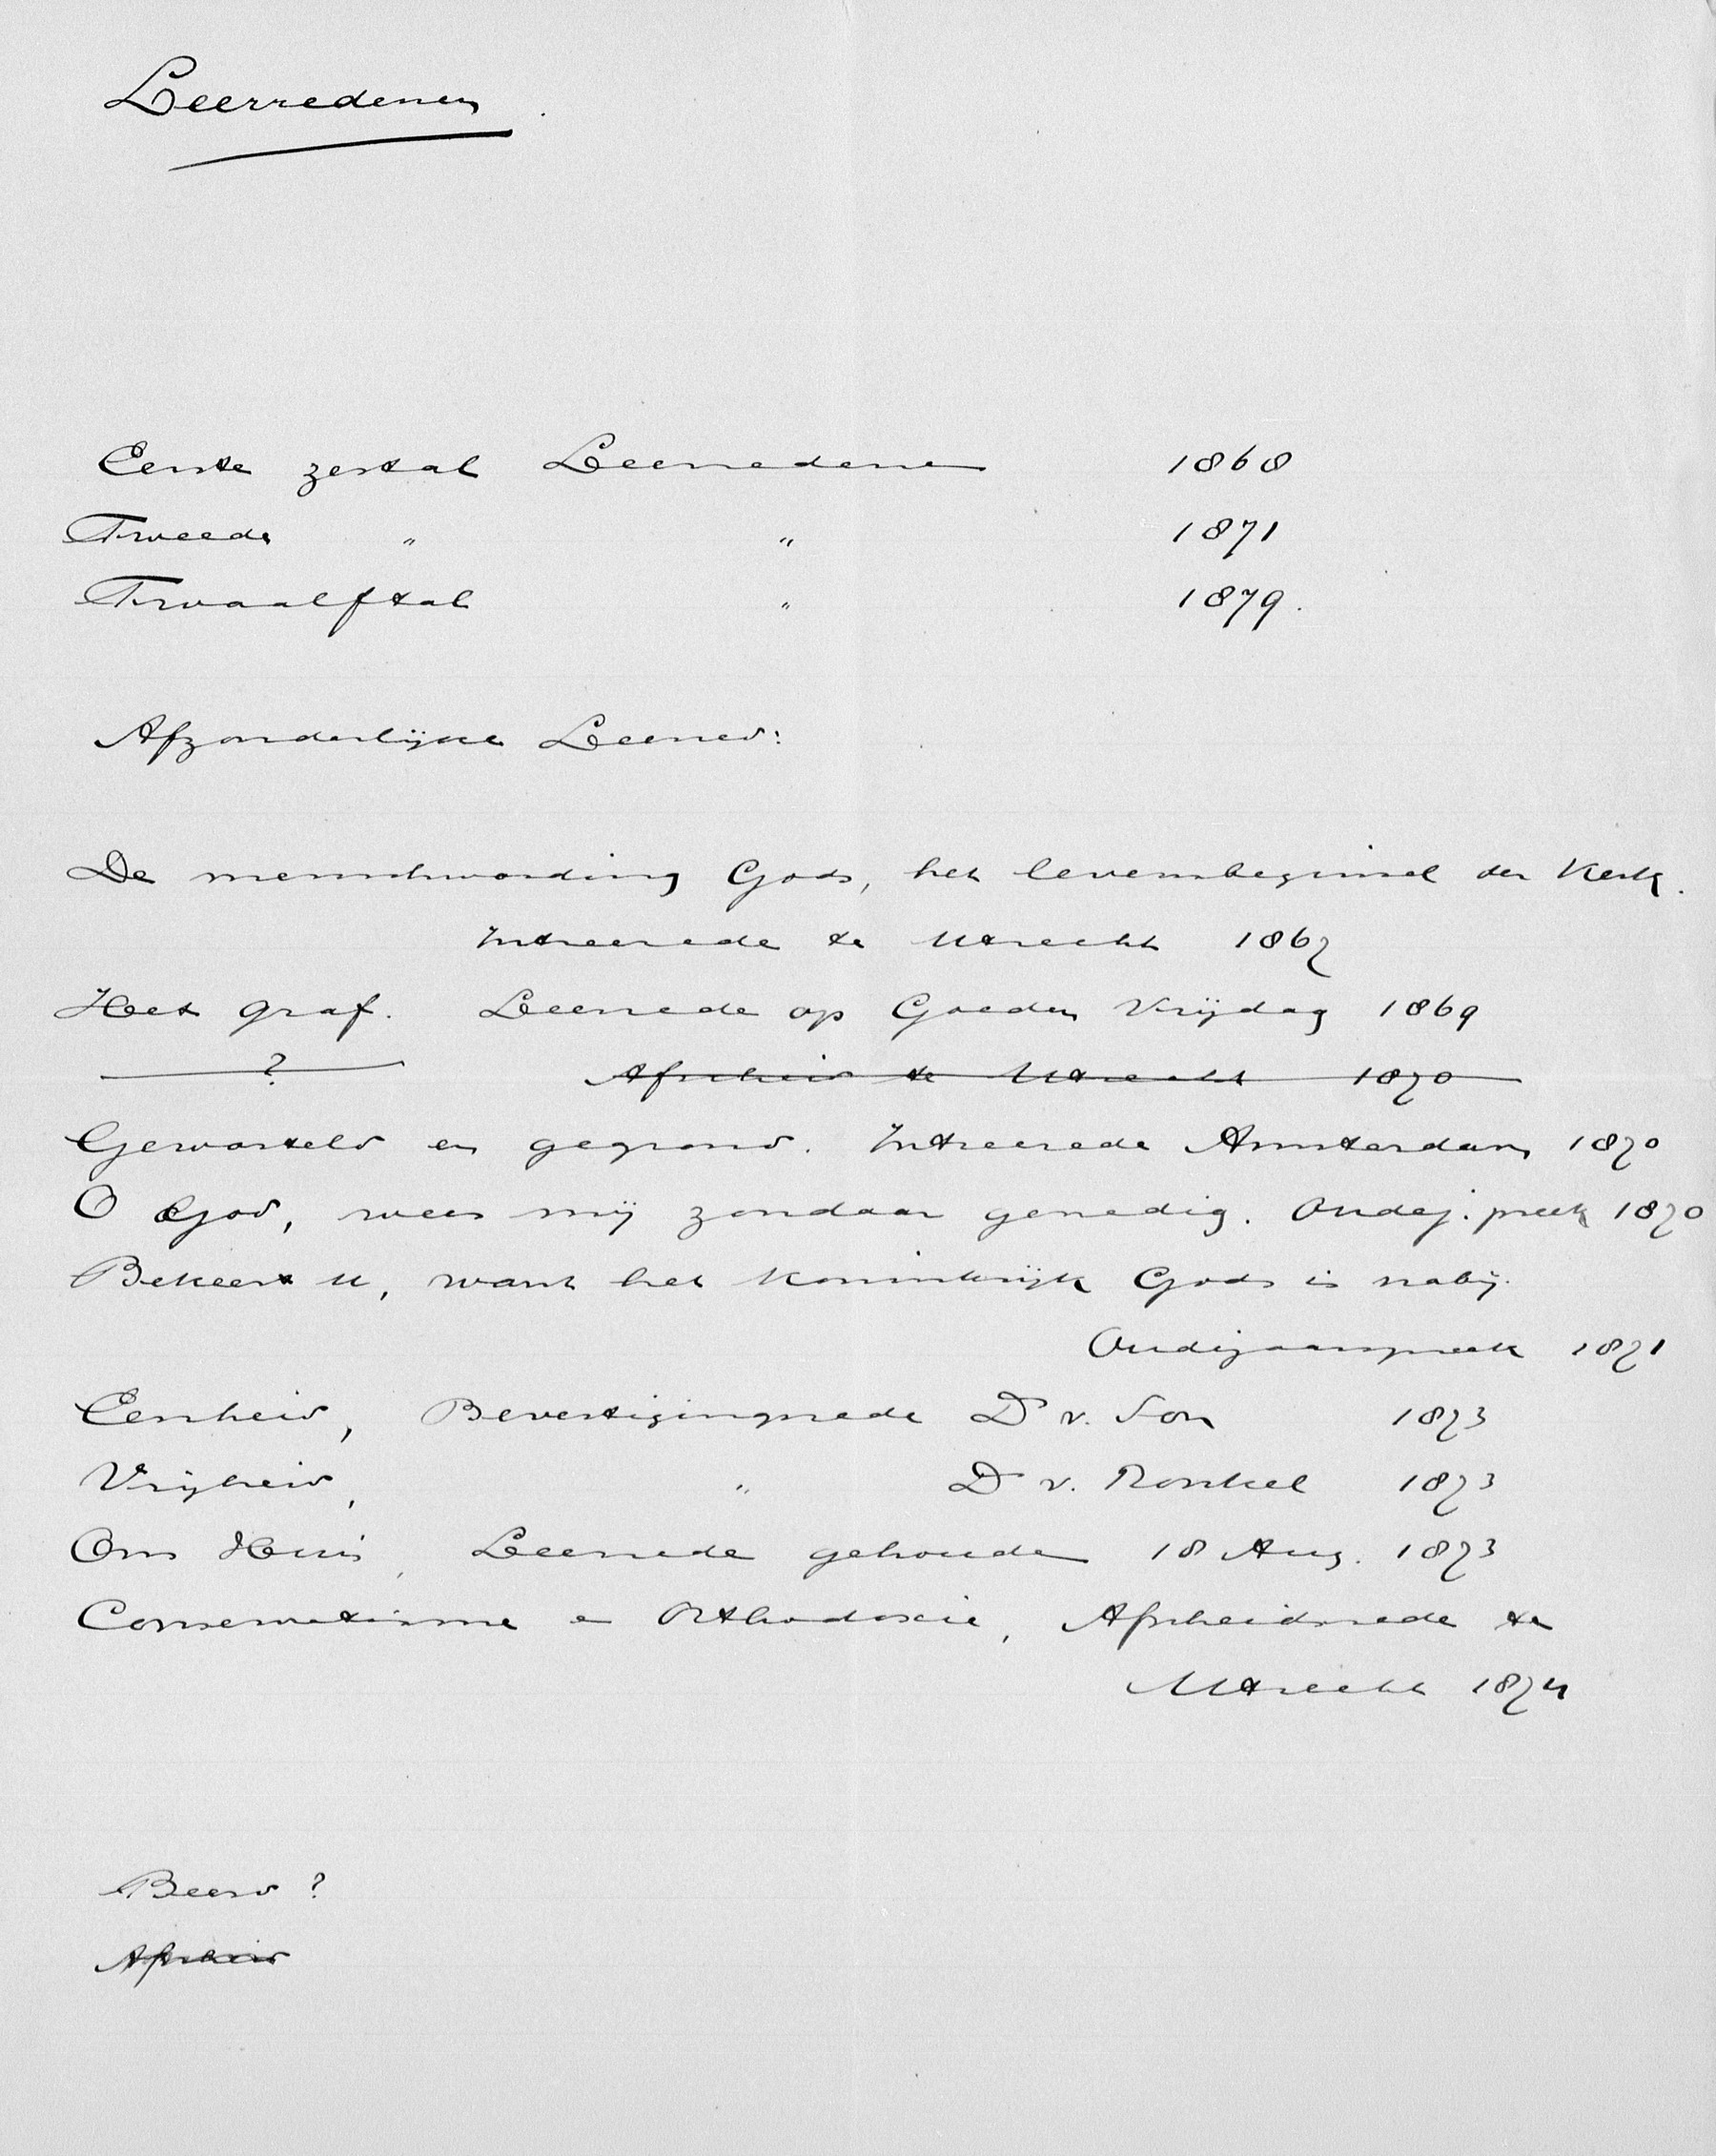 Leerredenen.
Eerste zestal Leerredenen 1868
Tweede " " 1871
Twaalftal " 1879.
Afzonderlijke Leerred:
De menschwording Gods, het levensbeginsel der Kerk.
Intreerede te Utrecht 1867
Het graf. Leerrede op Goeden Vrijdag 1869
? Afscheid te Utrecht 1870
Geworteld en gegrond. Intreerede Amsterdam 1870
O God, wees mij zondaar genadig. Oudej. preek 1870
Bekeert u, want het Koninkrijk Gods is nabij.
Oudejaarspreek 1871
Eenheid, Bevestigingsrede Dr v. Son 1873
Vrijheid, " Dr v. Ronkel 1873
Ons Huis, Leerrede gehouden 18 Aug. 1873
Conservatisme en Orthodoxie, Afscheidsrede te
Utrecht 1874
Beesd ?
Afscheid